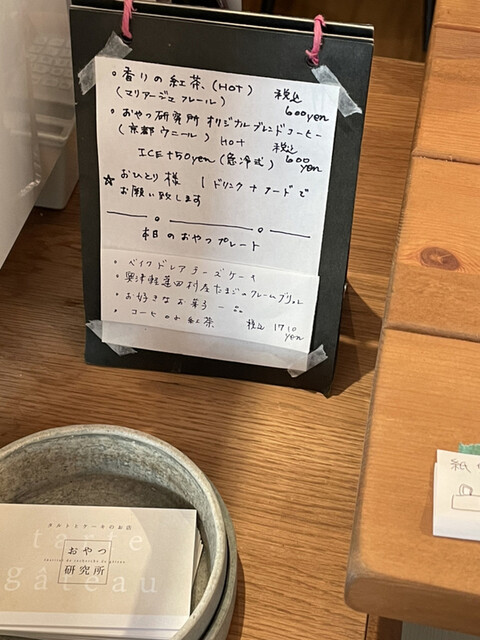 。香りの紅茶、(HOT) 税込
(マリアージュフレール) 600yen
。おやつ研究所オリジナルブレンドコーヒー
(京都ウニール) HOT 税込
ICE+50yen (急冷式) 600yen
☆おひとり様 1ドリンク+フードで
お願い致します
本日のおやつプレート
・ベイクドレアチーズケーキ
・奥津軽蓬田村産たまごのクレームブリュレ
・お好きなお菓子一点
・コーヒーor紅茶 税込 1710yen
紙
タルトとケーキのお店
tarte
おやつ
研究所
gâteau